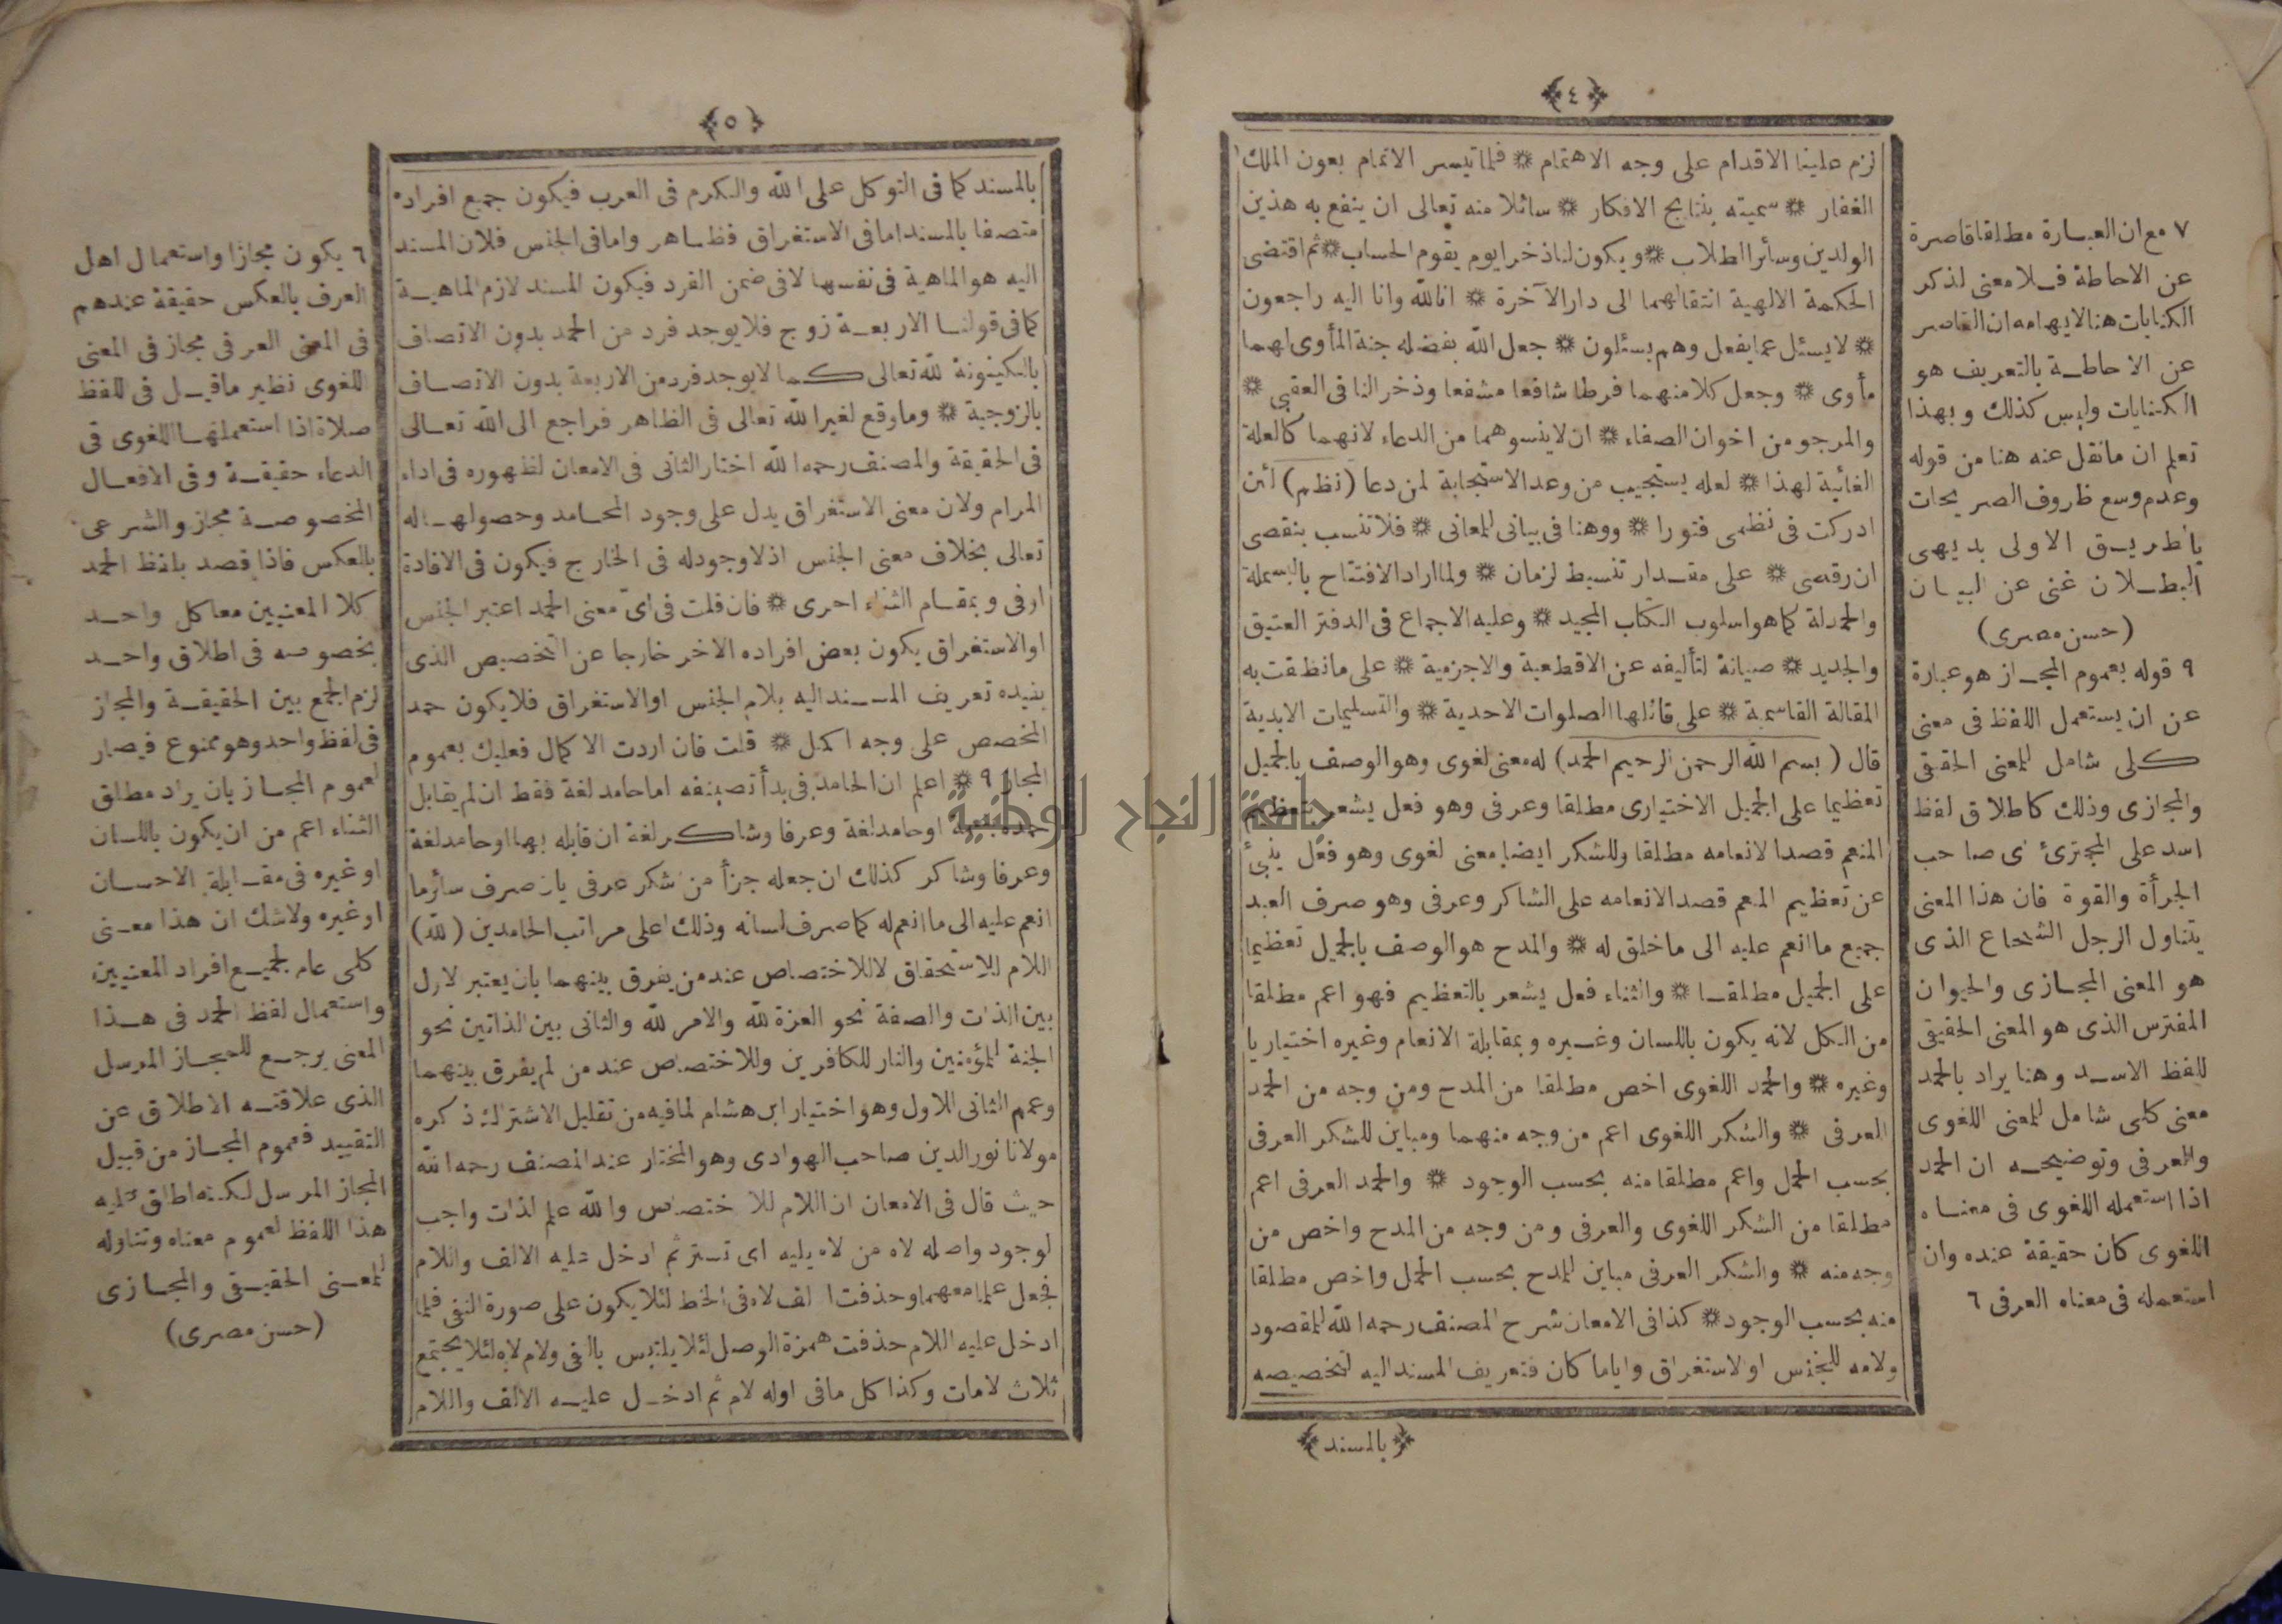 ﴿٤﴾
لزم علينا الاقدام على وجه الاهتمام * فلما تيسر الاتمام بعون الملك
الغفار * سميته بنتايج الافكار * سائلا منه تعالى ان ينفع به هذين
الولدين وسائر الطلاب * ويكون لنا ذخرا يوم يقوم الحساب * ثم اقتضى
الحكمة الالهية انتقالهما الى دار الآخرة * انا لله وانا اليه راجعون
* لا يسئل عما يفعل وهم يسئلون * جعل الله بفضله جنة المأوى لهما
مأوى * وجعل كلا منهما فرطا شافعا مشفعا وذخرا لنا فى العقبى *
والمرجو من اخوان الصفاء * ان لا ينسوهما من الدعاء لانهما كالعلة
الغائية لهذا * لعله يستجيب من وعد الاستجابة لمن دعا (نظم) لئن
ادركت فى نظمى فتورا * ووهنا فى بيانى للمعانى * فلا تنسب بنقصى
ان رقصى * على مقدار تنسيط لزمان * ولما اراد الافتتاح بالبسملة
والحمدلة كما هو اسلوب الكتاب المجيد * وعليه الاجماع فى الدفتر العتيق
والجديد * صيانة لتأليفه عن الاقطعية والاجزمية * على ما نطقت به
المقالة القاسمية * على قائلها الصلوات الاحدية * والتسليمات الابدية
قال (بسم الله الرحمن الرحيم الحمد) له معنى لغوى وهو الوصف بالجميل
تعظيما على الجميل الاختيارى مطلقا وعرفى وهو فعل يشعر بتعظيم
المنعم قصدا لانعامه مطلقا وللشكر ايضا معنى لغوى وهو فعل ينبئ
عن تعظيم المنعم قصدا لانعامه على الشاكر وعرفى وهو صرف العبد
جميع ما انعم عليه الى ما خلق له * والمدح هو الوصف بالجميل تعظيما
على الجميل مطلقا * والثناء فعل يشعر بالتعظيم فهو اعم مطلقا
من الكل لانه يكون باللسان وغيره وبمقابلة الانعام وغيره اختياريا
وغيره * والحمد اللغوى اخص مطلقا من المدح ومن وجه من الحمد
العرفى * والشكر اللغوى اعم من وجه منهما ومباين للشكر العرفى
بحسب الحمل واعم مطلقا منه بحسب الوجود * والحمد العرفى اعم
مطلقا من الشكر اللغوى والعرفى ومن وجه من المدح واخص من
وجه منه * والشكر العرفى مباين للمدح بحسب الحمل واخص مطلقا
منه بحسب الوجود * كذا فى الامعان شرح المصنف رحمه الله للمقصود
ولامه للجنس او الاستغراق واياما كان فتعريف المسند اليه لتخصيصه
﴿بالمسند﴾
٧ مع ان العبارة مطلقا قاصرة
عن الاحاطة فلا معنى لذكر
الكنايات هنا لايهامه ان القاصر
عن الاحاطة بالتعريف هو
الكنايات وليس كذلك وبهذا
تعلم ان ما نقل عنه هنا من قوله
وعدم وسع ظروف الصريحات
بالطريق الاولى بديهى
البطلان غنى عن البيان
(حسن مصرى)
٩ قوله بعموم المجاز هو عبارة
عن ان يستعمل اللفظ فى معنى
كلى شامل للمعنى الحقيقى
والمجازى وذلك كاطلاق لفظ
اسد على المجترئ اى صاحب
الجرأة والقوة فان هذا المعنى
يتناول الرجل الشجاع الذى
هو المعنى المجازى والحيوان
المفترس الذى هو المعنى الحقيقى
للفظ الاسد وهنا يراد بالحمد
معنى كلى شامل للمعنى اللغوى
والعرفى وتوضيحه ان الحمد
اذا استعمله اللغوى فى معناه
اللغوى كان حقيقة عنده وان
استعمله فى معناه العرفى ٦
﴿٥﴾
بالمسند كما فى التوكل على الله والكرم فى العرب فيكون جميع افراده
متصفا بالمسند اما فى الاستغراق فظاهر واما فى الجنس فلان المسند
اليه هو الماهية فى نفسها لا فى ضمن الفرد فيكون المسند لازم الماهية
كما فى قولنا الاربعة زوج فلا يوجد فرد من الحمد بدون الاتصاف
بالكينونة لله تعالى كما لا يوجد فرد من الاربعة بدون الاتصاف
بالزوجية * وما وقع لغير الله تعالى فى الظاهر فراجع الى الله تعالى
فى الحقيقة والمصنف رحمه الله اختار الثانى فى الامعان لظهوره فى اداء
المرام ولان معنى الاستغراق يدل على وجود المحامد وحصولها له
تعالى بخلاف معنى الجنس اذ لا وجود له فى الخارج فيكون فى الافادة
اوفى وبمقام الثناء احرى * فان قلت فى اى معنى الحمد اعتبر الجنس
او الاستغراق يكون بعض افراده الاخر خارجا عن التخصيص الذى
يفيده تعريف المسند اليه بلام الجنس او الاستغراق فلا يكون حمد
المخصص على وجه اكمل * قلت فان اردت الاكمال فعليك بعموم
المجاز ٩ * اعلم ان الحامد فى بدأ تصنيفه اما حامد لغة فقط ان لم يقابل
حمده بنعمة او حامد لغة وعرفا وشاكر لغة ان قابله بها او حامد لغة
وعرفا وشاكر كذلك ان جعله جزأ من شكر عرفى بان صرف سائر ما
انعم عليه الى ما انعم له كما صرف لسانه وذلك اعلى مراتب الحامدين (لله)
اللام للاستحقاق لا للاختصاص عند من يفرق بينهما بان يعتبر الاول
بين الذات والصفة نحو العزة لله والامر لله والثانى بين الذاتين نحو
الجنة للمؤمنين والنار للكافرين وللاختصاص عند من لم يفرق بينهما
وعمم الثانى للاول وهو اختيار ابن هشام لما فيه من تقليل الاشتراك ذكره
مولانا نور الدين صاحب الهوادى وهو المختار عند المصنف رحمه الله
حيث قال فى الامعان ان اللام للاختصاص والله علم لذات واجب
لوجود واصله لاه من لاه يليه اى تستر ثم ادخل عليه الالف واللام
فجعل علما معهما وحذفت الف لاه فى الخط لئلا يكون على صورة النفى فلما
ادخل عليه اللام حذفت همزة الوصل لئلا يلتبس بالنفى ولام لاه لئلا يجتمع
ثلاث لامات وكذا كل ما فى اوله لام ثم ادخل عليه الالف واللام
٦ يكون مجازا واستعمال اهل
العرف بالعكس حقيقة عندهم
فى المعنى العرفى مجاز فى المعنى
اللغوى نظير ما قيل فى للفظ
صلاة اذا استعملتها اللغوى فى
الدعاء حقيقة وفى الافعال
المخصوصة مجاز والشرعى
بالعكس فاذا قصد بلفظ الحمد
كلا المعنيين معا كل واحد
بخصوصه فى اطلاق واحد
لزم الجمع بين الحقيقة والمجاز
فى لفظ واحد وهو ممنوع فيصار
لعموم المجاز بان يراد مطلق
الثناء اعم من ان يكون باللسان
او غيره فى مقابلة الاحسان
او غيره ولا شك ان هذا معنى
كلى عام لجميع افراد المعنيين
واستعمال لفظ الحمد فى هذا
المعنى يرجع للمجاز المرسل
الذى علاقته الاطلاق عن
التقييد فعموم المجاز من قبيل
المجاز المرسل لكنه اطلق عليه
هذا اللفظ لعموم معناه وتناوله
للمعنى الحقيقى والمجازى
(حسن مصرى)
جامعة النجاح الوطنية